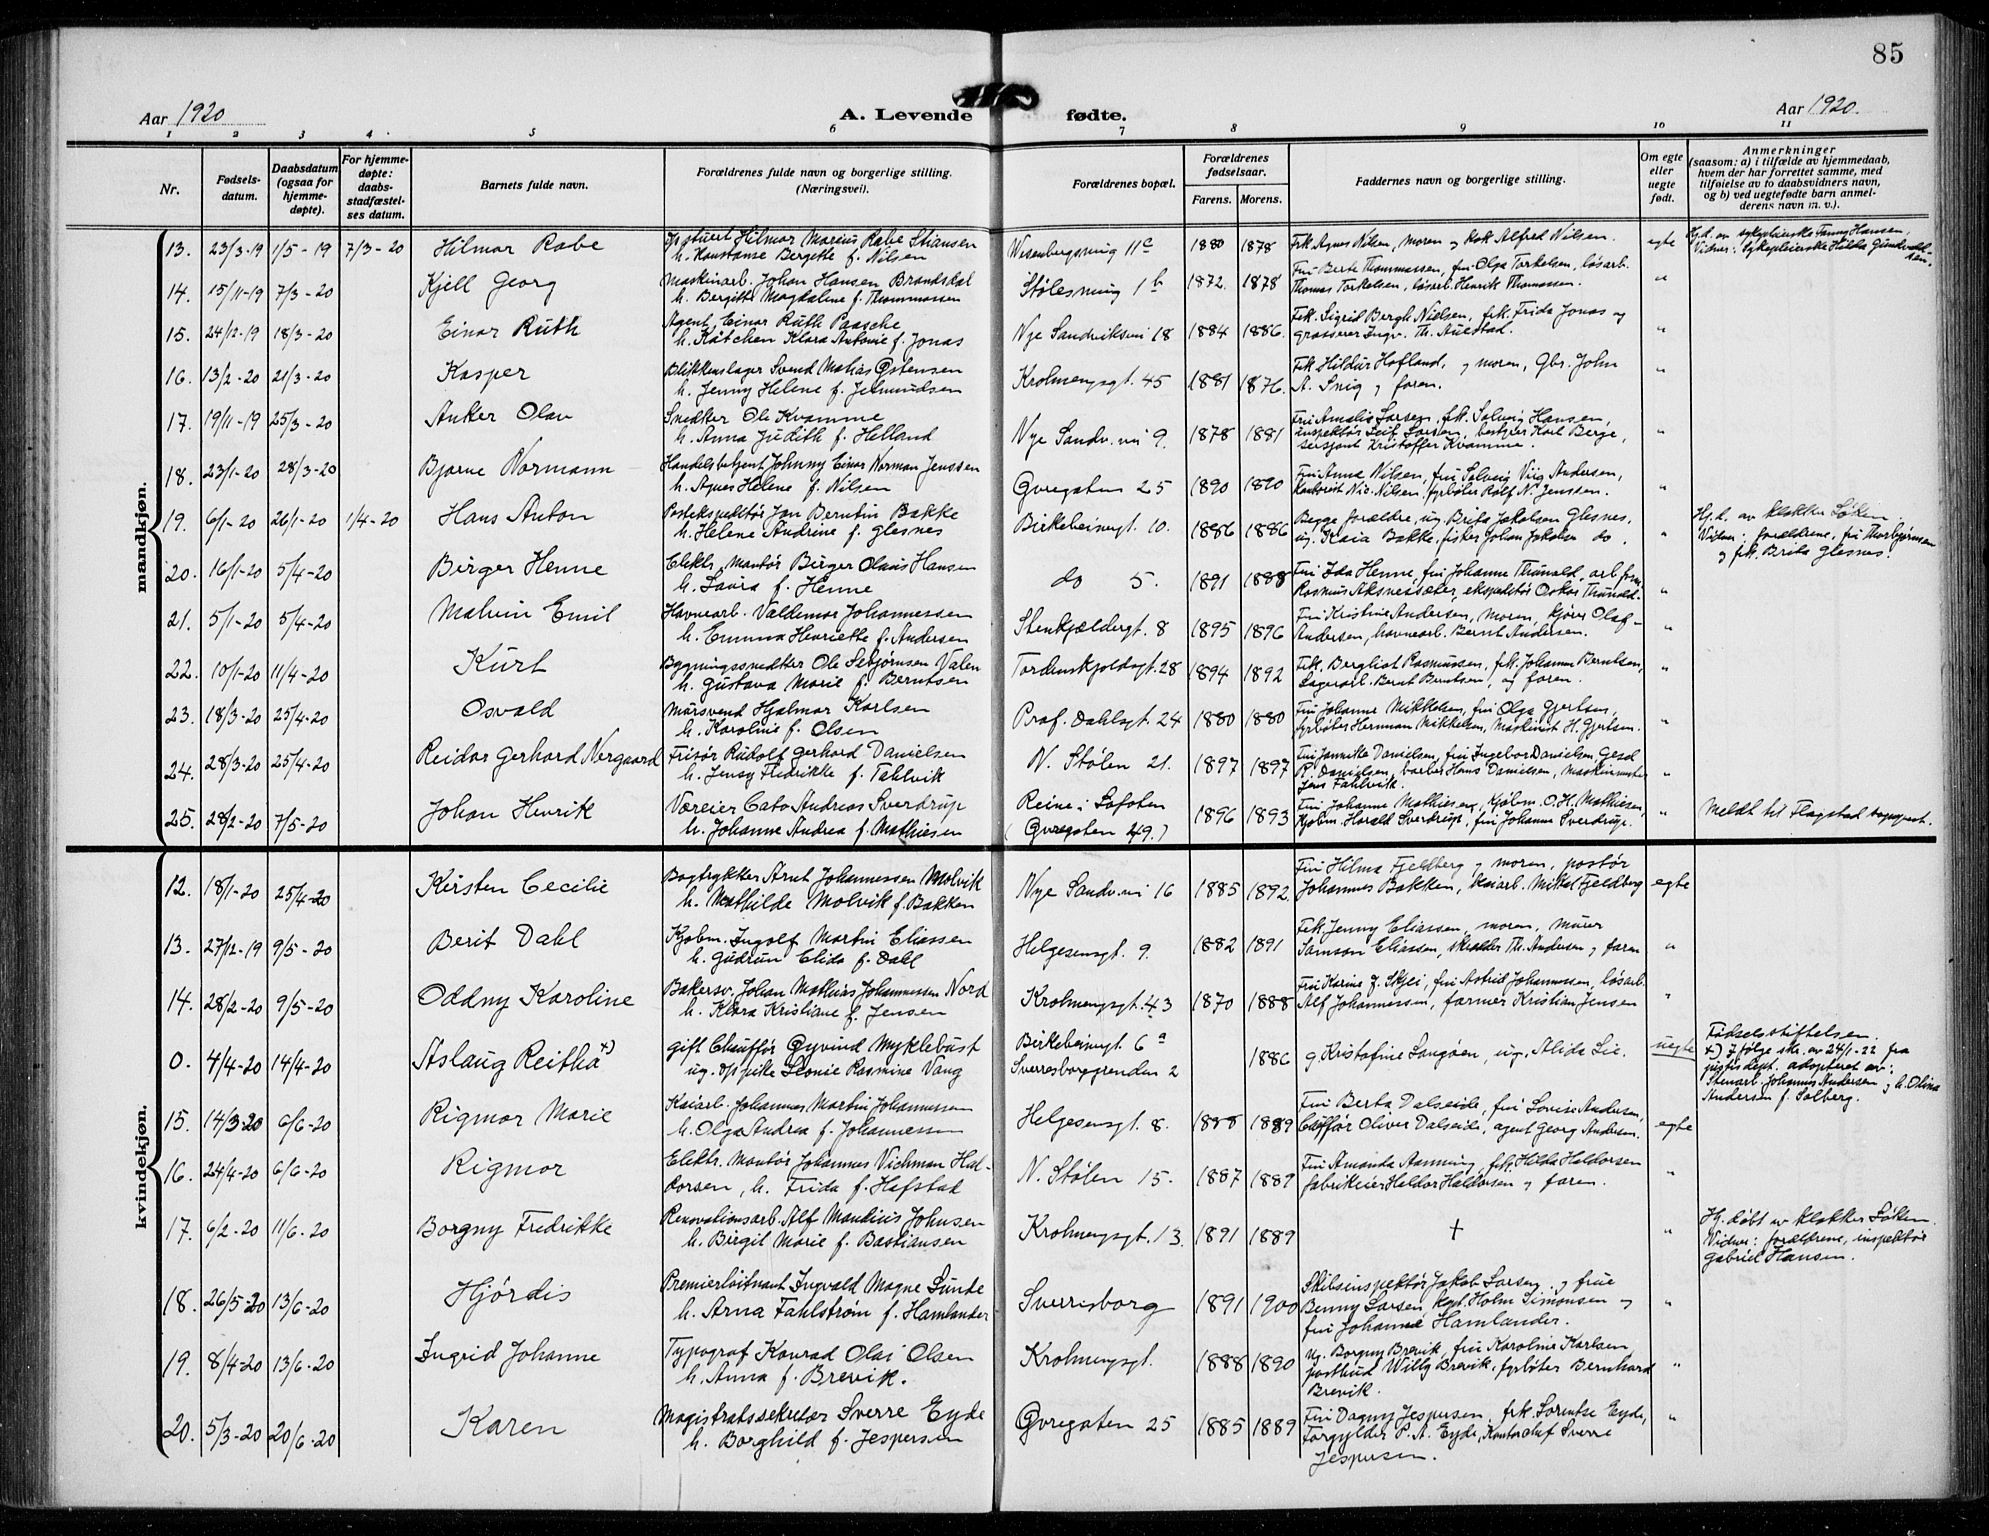 85
Aar 1920
A. Levende fødte.
Aar 1920.
1 2 3 4. 5 6 7 8 9 10 11
Nr.
Fødsels-datum.
Daabsdatum (ogsaa for hjemme-døpte).
For hjemme-døpte: daabs-stadfæstel-ses datum.
Barnets fulde navn.
Forældrenes fulde navn og borgerlige stilling.
(Næringsvei).
Forældrenes bopæl.
Forældrenes fødselsaar.
Farens. Morens.
Faddernes navn og borgerlige stilling.
Om egte eller uegte født.
Anmerkninger
(saasom: a) i tilfælde av hjemmedaab,
hvem der har forrettet samme, med
tilføielse av to daabsvidners navn,
og b) ved uegtefødte barn anmel-
derens navn m. v.).
mandkjøn.
13. 23/3-19 1/5-19 7/3-20 Hilmar Rabe Hilmar Marius Rabe Stiansen Wesenbergsmug 11c 1880 1878 Frk. Agnes Nilsen, moren og kok Alfred Nilsen. egte Hj.d. av sykepleierske Fanny Hansen,
h. Konstanse Bergitte f. Nilsen Vidner: Sykepleierske Hilda
14. 15/11-19 7/3-20 Kjell Georg Maskinarb. Johan Hansen Brandsdal Stølesmug 1b 1872. 1878 Fru Berte Thommassen, fru Olga Torkelsen, løsarb. "
h. Bergitte Magdaline f. Thommassen Thomas Torkelsen, løsarb. Henrik Thomassen.
15. 24/12-19 18/3-20 Einar Ruth Agent Einar Ruth Paasche Nye Sandviksvei 18 1884 1886. Frk. Sigrid Bergh Nielsen, frk. Frida Jonas og "
h. Kätchen Klara Antonie f. Jonas grosserer Ingv. Th. Auestad.
16. 13/2-20 21/3-20 Kasper Blikkenslager Svend Matias Østensen Krohnengsgt. 45 1881 1876. Frk. Hildur Hofland, og moren, Gbr. John "
h. Jenny Helene f. A. Snig og faren.
17. 19/11-19 25/3-20 Anker Olav Snedker Ole Kvamme Nye Sandv. vei 9. 1878 1881 Fru Amalie Larsen, frk. Solveig Hansen, "
h. Anna Judith f. Helland inspektør Leif Larsen, bestyrer Karl Berge,
sersjant Kristoffer Kvamme.
18. 23/1-20 28/3-20 Bjarne Normann Handelsbetjent Johnny Einar Norman Jenssen Øvregaten 25 1890 1890 Fru Anna Nilsen, fru Solveig Viig Andersen, "
h. Agnes Helene f. Nilsen Kontorist Nic. Nilsen, fyrbøter Rolf N. Jenssen.
19. 6/1-20 26/1-20 1/4-20 Hans Anton Postekspeditør Jan Berntin Bakke Birkebeinergt. 10. 1886 1886 Begge forældre, ug. Brita Jakobsen Glesnes, " Hj.d. av klokker Løken.
h. Helene Andrine f. Glesnes ug. Kaia Bakke, fisker Johan Jakobsen do. Vidner: forældrene, fru Thorbjørnsen
og frk. Brita Glesnes.
20. 16/1-20 5/4-20 Birger Henne Elektr. Montør Birger Olaus Hansen do 5. 1891 1888 Fru Ida Henne, fru Johanne Thunold, arb.form. "
h. Laura f. Henne Rasmus Aksnessæter, ekspeditør Oskar Thunold.
21. 5/1-20 5/4-20 Malvin Emil Havnearb. Valdemar Johannessen Stenkjældergt. 8 1895 1896 Fru Kristine Andersen, moren, kjører Olaf "
h. Emma Henriette f. Andersen Andersen, havnearb. Bernt Andersen.
22. 10/1-20 11/4-20 Kurt Bygningssnedker Ole Sebjørnsen Valen Tordenskjoldsgt. 28 1894 1892 Frk. Bergliot Rasmussen, frk. Johanne Berntsen, "
h. Gustava Marie f. Berntsen Lagerarb. Bernt Berntsen, og faren.
23. 18/3-20 25/4-20 Osvald Mursvend Hjalmar Karlsen Prof. Dahlsgt. 24 1880 1880 Fru Johanne Mikkelsen, fru Olga Gjertsen, "
h. Karoline f. Olsen fyrbøter Herman Mikkelsen, Maskinist H. Gjertsen.
24. 28/3-20 25/4-20 Reidar Gerhard Nergaard Frisør Rudolf Gerhard Danielsen N. Stølen 21. 1897 1897 Fru Jannikke Danielsen, fru Ingebor Danielsen, "
h. Jensy Fredrikke f. Fahlvik R. Danielsen, barber Hans Danielsen, Maskinmester
Jens Fahlvik.
25. 28/2-20 7/5-20 Johan Henrik Væreier Cato Andreas Sverdrup Reine i Lofoten 1896 1893 Fru Johanne Mathiesen, Kjøbm. O. H. Mathiesen, " Meldt til Flagstad sogneprest.
h. Johanne Andrea f. Mathiesen (Øvregaten 49.) Kjøbm. Harald Sverdrup, fru Johanne Sverdrup.
kvindekjøn.
12. 18/1-20 25/4-20 Kirsten Cecilie Bogtrykker Arnt Johannessen Molvik Nye Sandv. vei 16 1885 1892. Fru Hilma Fjeldberg og moren, postør egte
h. Mathilde Molvik f. Bakken Johannes Bakken, Kaiarb. Mikal Fjeldberg
13. 27/12-19 9/5-20 Berit Dahl Kjøbm. Ingolf Martin Eliassen Helgesensgt. 9. 1882 1891 Frk. Jenny Eliassen, moren, murer "
h. Gudrun Elida f. Dahl Samson Eliassen, skrædder Th. Andersen og faren
14. 28/2-20 9/5-20 Oddny Karoline Bakersv. Johan Mathias Johannessen Nord Krohnengsgt. 43 1870 1888 Fru Karine J. Skjei, fru Astrid Johannessen, løsarb. "
h. Klara Kristiane f. Jensen Alf Johannessen, farmer Kristian Jensen
0. 4/4-20 14/4-20 Aslaug Reitha +) gift Chauffør Øyvind Myklebust Birkebeinergt 6a 1886 g. Kristofine Langøen, ug. Alida Lie. uegte Fødselsstiftelsen.
ug. oppike Leonie Rasmine Vang Sverresborggrenden 2 +) Ifølge skr. av 24/1-22 fra
justisdept. adopteret av:
Stenarb. Johannes Andersen og h. Olina
Andersen f. Solberg.
15. 14/3-20 6/6-20 Rigmor Marie Kaiarb. Johannes Martin Johannessen Helgesensgt. 8. 1888 1889 Fru Berta Dalseide, fru Lovise Andersen, egte
h. Olga Andrea f. Johannessen Chaffør Oliver Dalseide, agent Georg Andersen.
16. 24/4-20 6/6-20 Rigmor Elektr. Montør Johannes Vichman Hal- N. Stølen 15. 1887 1889 Fru Amanda Aanning, frk. Hilda Haldorsen "
dorsen, h. Frida f. Hafstad fabrikeier Haldor Haldorsen og faren.
17. 6/2-20 11/6-20 Borgny Fredrikke Renovationsarb. Alf Mandius Johnsen Krohnengsgt. 13. 1891 1889 + " Hj. døbt av klokker Løken.
h. Birgit Marie f. Bastiansen Vidner: forældrene, inspektør
Gabriel Hansen.
18. 26/5-20 13/6-20 Hjørdis Premierløitnant Ingvald Magne Sunde Sverresborg 1891 1900 Skibsinspektør Jakob Larsen og frue "
h. Arna Fahlstrøm f. Hamlander Benny Larsen, kapt. Holm Simonsen og
fru Johanne Hamlander.
19. 8/4-20 13/6-20 Ingrid Johanne Typograf Konrad Olai Olsen Krohnengsgt. 1888 1890 Ug. Borgny Brevik, fru Karoline Karlsen, "
h. Anna f. Brevik. postbud Willy Brevik, fyrbøter Bernhard
Brevik.
20. 5/3-20 20/6-20 Karen Magistratssekretær Sverre Eyde Øvregaten 25 1885 1889 Fru Dagny Jespersen, frk. Lorentse Eyde, "
h. Borghild f. Jespersen Forgylder P. A. Eyde, Kontorchef Sverre
Jespersen.